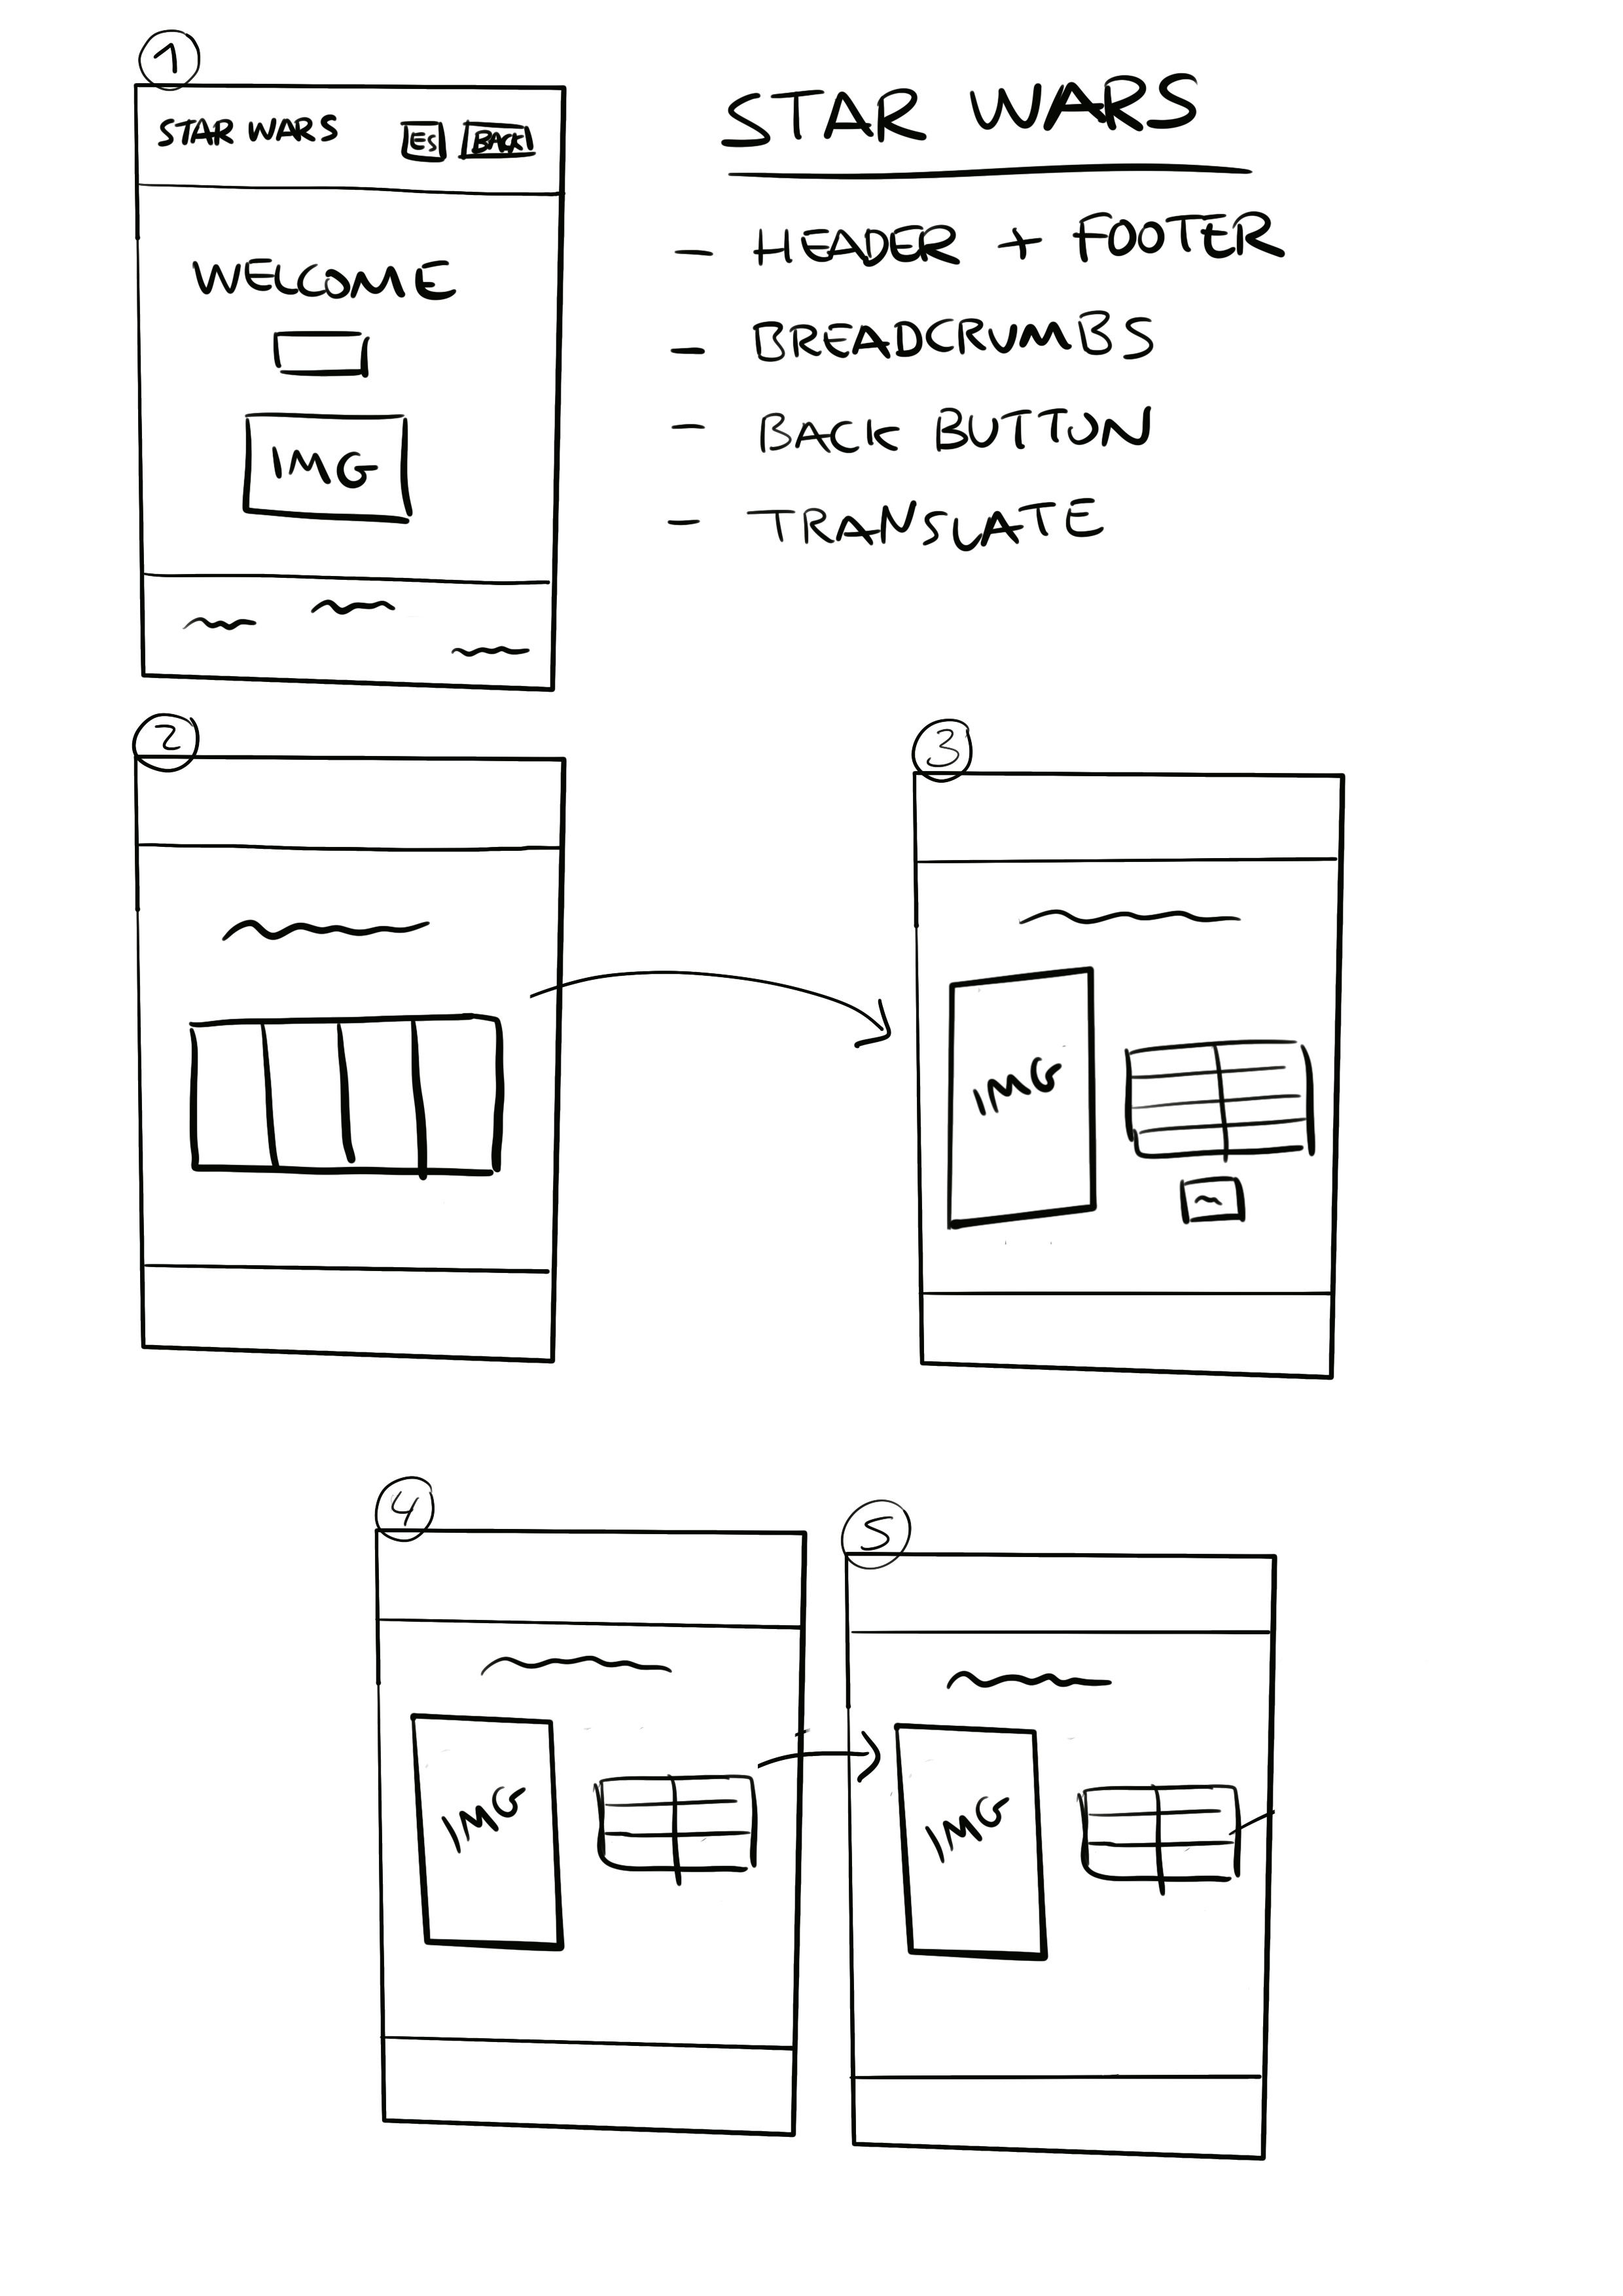 1
STAR WARS ES BACK
WELCOME
IMG
STAR WARS
- HEADER + FOOTER
- BREADCRUMBS
- BACK BUTTON
- TRANSLATE
2
3
IMG
4
IMG
5
IMG